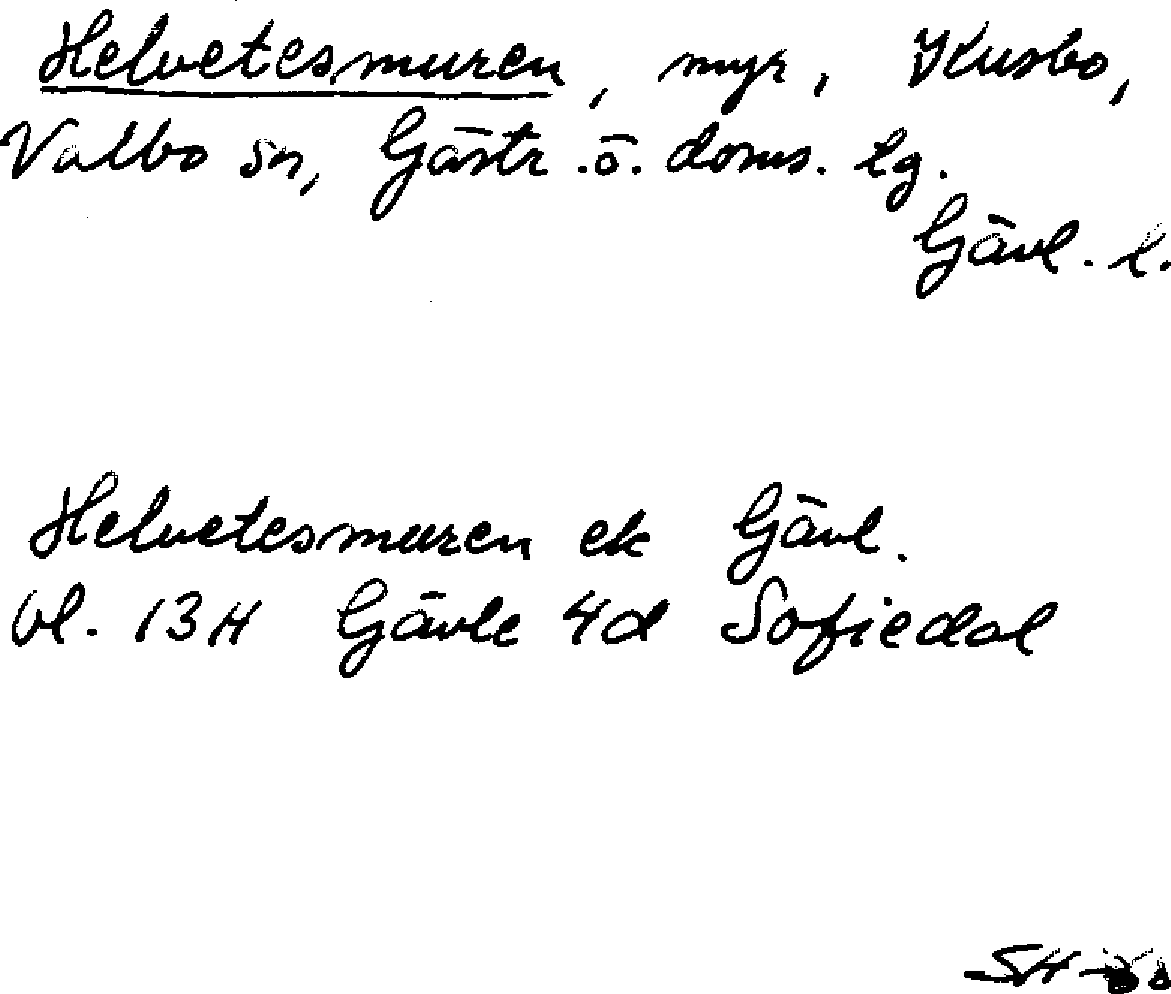 Helvetesmuren, myr, Kusbo,
Valbo sn, Gästr. ö. doms. lg.
Gävl. l.
Helvetesmuren ek Gävl.
bl. 13H Gävle 4d Sofiedal
SH